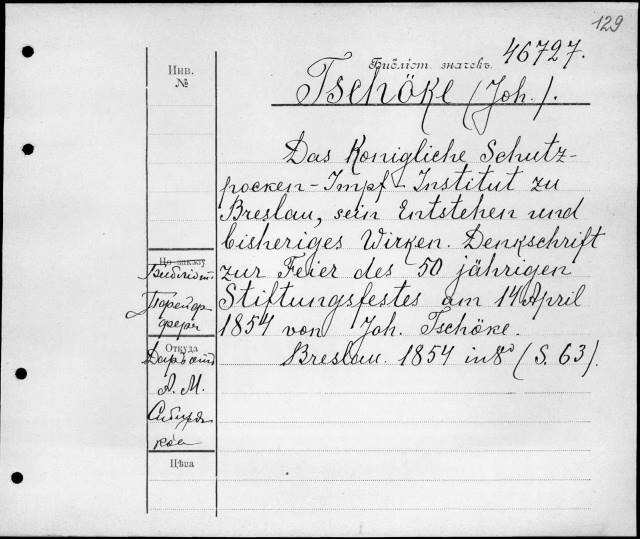 129
46727.
Библіот. значекъ.
Tschöke (Joh.).
Инв.
№
Das Konigliche Schutz-
pocken-Impf-Institut zu
Breslau, sein Entstehen und
bisheriges Wirken. Denkschrift
zur Feier des 50 jährigen
Stiftungsfestes am 14 April
1854 von Joh. Tschöke.
Breslau. 1854 in 8º (S. 63).
По заказу
Библіот.
Откуда
А. М.
Сибиряк
Цѣна